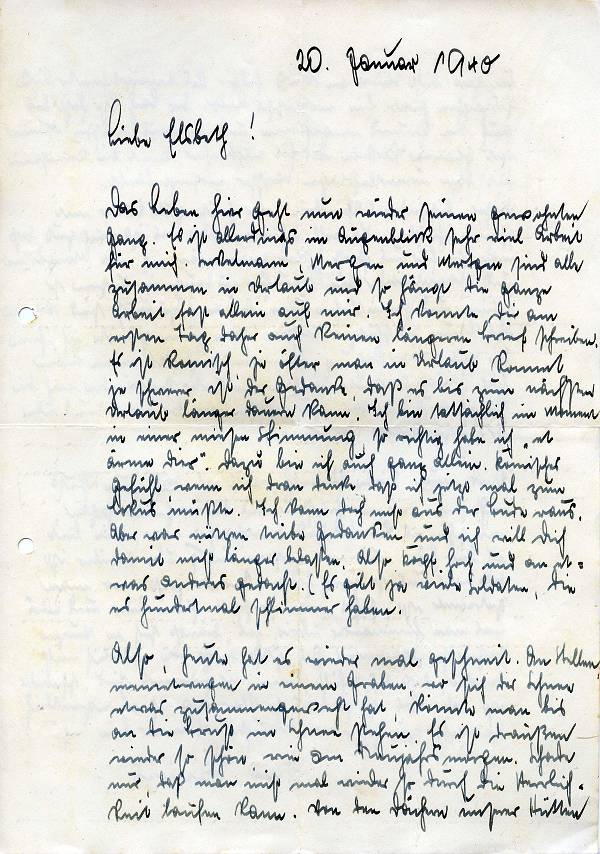 20. Januar 1940
Liebe Elsbeth!
Das Leben hier geht nun wieder seinen gewohnten
Gang. Es ist allerdings im Augenblick sehr viel Arbeit
für mich. Mergen und Mertgen sind alle
zusammen in Urlaub und so hängt die ganze
Arbeit fast allein auf mir. Ich konnte Dir am
ersten Tag daher auch keinen längeren Brief schreiben.
Es ist komisch, je öfter man in Urlaub kommt
je schwerer ist der Gedanke, daß es bis zum nächsten
Urlaub länger dauern kann. Ich bin tatsächlich im Moment
in einer miesen Stimmung, so richtig habe ich „et
ärme Dier“. Dazu bin ich auch ganz allein. Komisches
Gefühl, wenn ich dran denke, daß ich jetzt mal zum
Lokus müßte. Ich kann doch nicht aus der Bude raus.
Aber was nützen trübe Gedanken und ich will Dich
damit nicht länger belasten. Also Kopf hoch und an et=
was anderes gedacht. (Es gibt ja viele Soldaten, die
es hundertmal schlimmer haben.
Also, heute hat es wieder mal geschneit. An Stellen
meinetwegen in einem Graben, wo sich der Schnee
etwas zusammengeweht hat, könnte man bis
an die Brust im Schnee stehen. Es ist draußen
wieder so schön, wie am Neujahrsmorgen. Schade
nur, daß man nicht mal wieder so durch die Herrlich=
keit laufen kann. Von den Dächern unserer Hütten